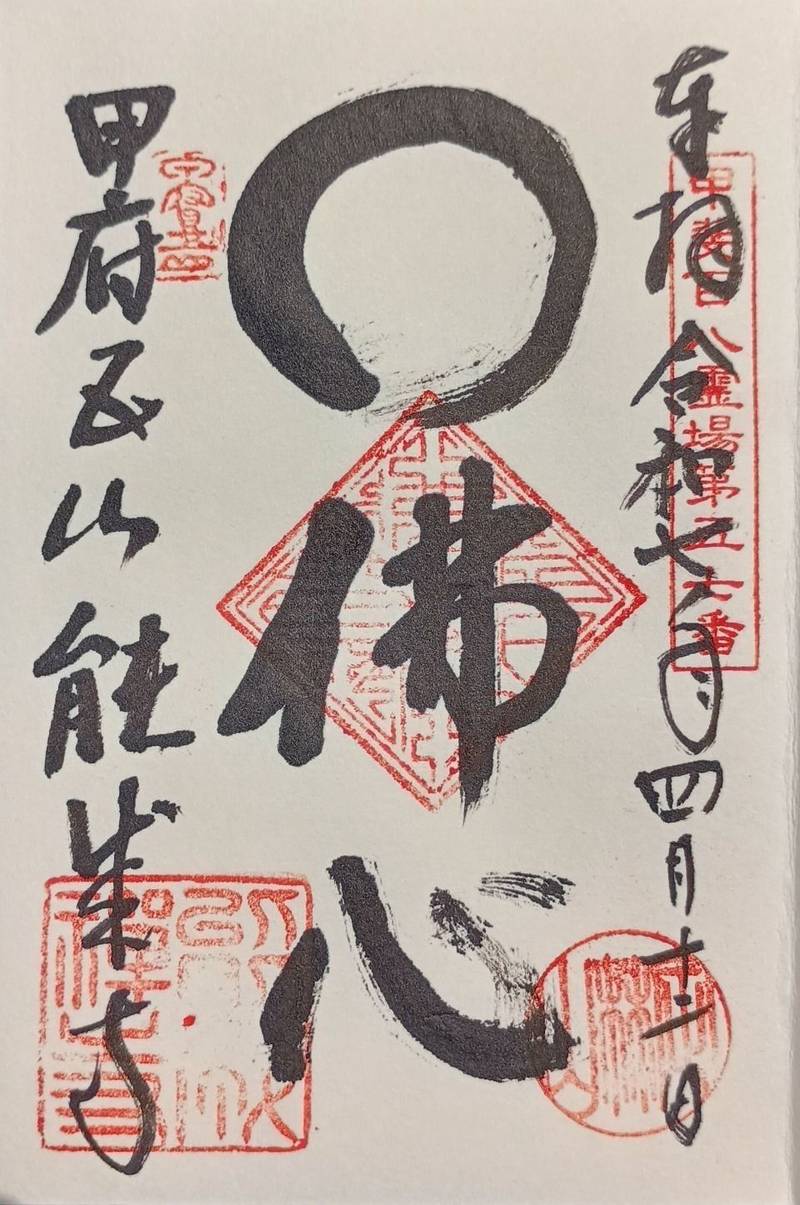 奉拝 令和七年四月十二日
甲斐百八霊場第五七番
佛心
甲府五山 能成寺